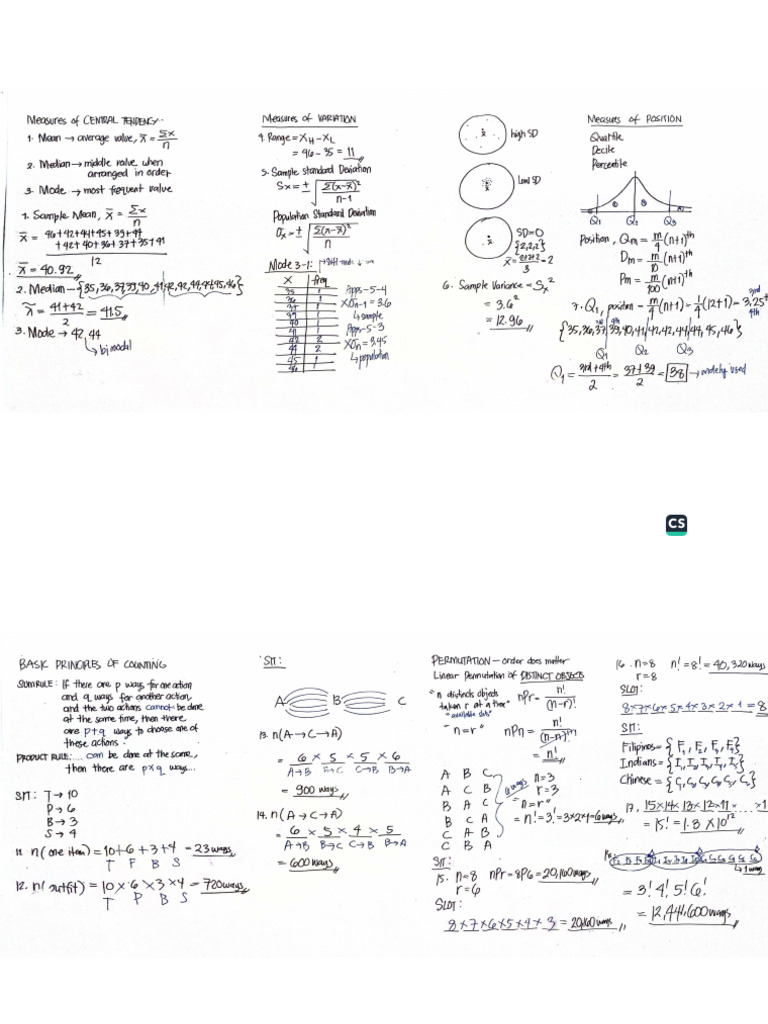 Measures of CENTRAL TENDENCY:
1. Mean → average value, x̄ = Σx/n
2. Median → middle value when
arranged in order
3. Mode → most frequent value
1. Sample Mean, x̄ = Σx/n
x̄ = 46+42+44+45+39+44
+42+40+36+37+35+41
12
x̄ = 40.92
2. Median → {35,36,37,39,40,41,42,42,44,44,45,46}
x̃ = 41+42/2 = 41.5
3. Mode → 42, 44
↳ bimodal
Measures of VARIATION
4. Range = XH - XL
= 46 - 35 = 11
5. Sample Standard Deviation
Sx = ± √Σ(x-x̄)²/n-1
Population Standard Deviation
σx = ± √Σ(x-x̄)²/n
Mode 3-1:
X freq
35 1
36 1
37 1
39 1
40 1
41 1
42 2
44 2
45 1
46
Apps-5-4
xσn-1 = 3.6
↳ sample
Apps-5-3
xσn = 3.45
↳ population
high SD
Low SD
SD=0
{2,2,2}
x̄ = 2+2+2/3 = 2
6. Sample Variance = Sx²
= 3.6²
= 12.96
Measures of POSITION
Quartile
Decile
Percentile
Q1 Q2 Q3
Position, Qm = m/4 (n+1)th
Dm = m/10 (n+1)th
Pm = m/100 (n+1)th
7. Q1, position = m/4 (n+1) = 1/4 (12+1) = 3.25th
3rd
4th
{35,36,37,39,40,41,42,42,44,44,45,46}
Q1 Q2 Q3
Q1 = 3rd+4th/2 = 37+39/2 = 38 → widely used
CS
BASIC PRINCIPLES OF COUNTING
SUM RULE: If there are p ways for one action
and q ways for another action
and the two actions cannot be done
at the same time, then there
are p+q ways to choose one of
these actions.
PRODUCT RULE: .... can be done at the same,
then there are p×q ways...
SIT: T → 10
P → 6
B → 3
S → 4
11. n(one item) = 10+6+3+4 = 23 ways
T P B S
12. n(outfit) = 10×6×3×4 = 720 ways
T P B S
SIT:
A B C
13. n(A→C→A)
= 6 × 5 × 5 × 6
A→B B→C C→B B→A
= 900 ways
14. n(A→C→A)
= 6 × 5 × 4 × 5
A→B B→C C→B B→A
= 600 ways
PERMUTATION - order does matter
Linear Permutation of DISTINCT OBJECTS
"n distincts objects
taken r at a time"
"available slots"
nPr = n!/(n-r)!
"n=r"
nPn = n!/(n-n)!
= n!
A B C
A C B
B A C
B C A
C A B
C B A
6 ways
n=3
r=3
"n=r"
= n! = 3! = 3×2×1 = 6 ways
SIT:
15. n=8
r=6
nPr = 8P6 = 20,160 ways
SLOT:
8×7×6×5×4×3 = 20160 ways
16. n=8
r=8
n! = 8! = 40,320 ways
SLOT:
8×7×6×5×4×3×2×1 = 8
SIT:
Filipinos = {F, F2, F3, F4}
Indians = {I, I2, I3, I4, I5}
Chinese = {C, C2, C3, C4, C5, C6}
17. 15×14×13×12×11×....×1
= 15! = 1.3 × 10¹²
18.
↳ 1 way
= 3! 4! 5! 6!
= 12,441,600 ways